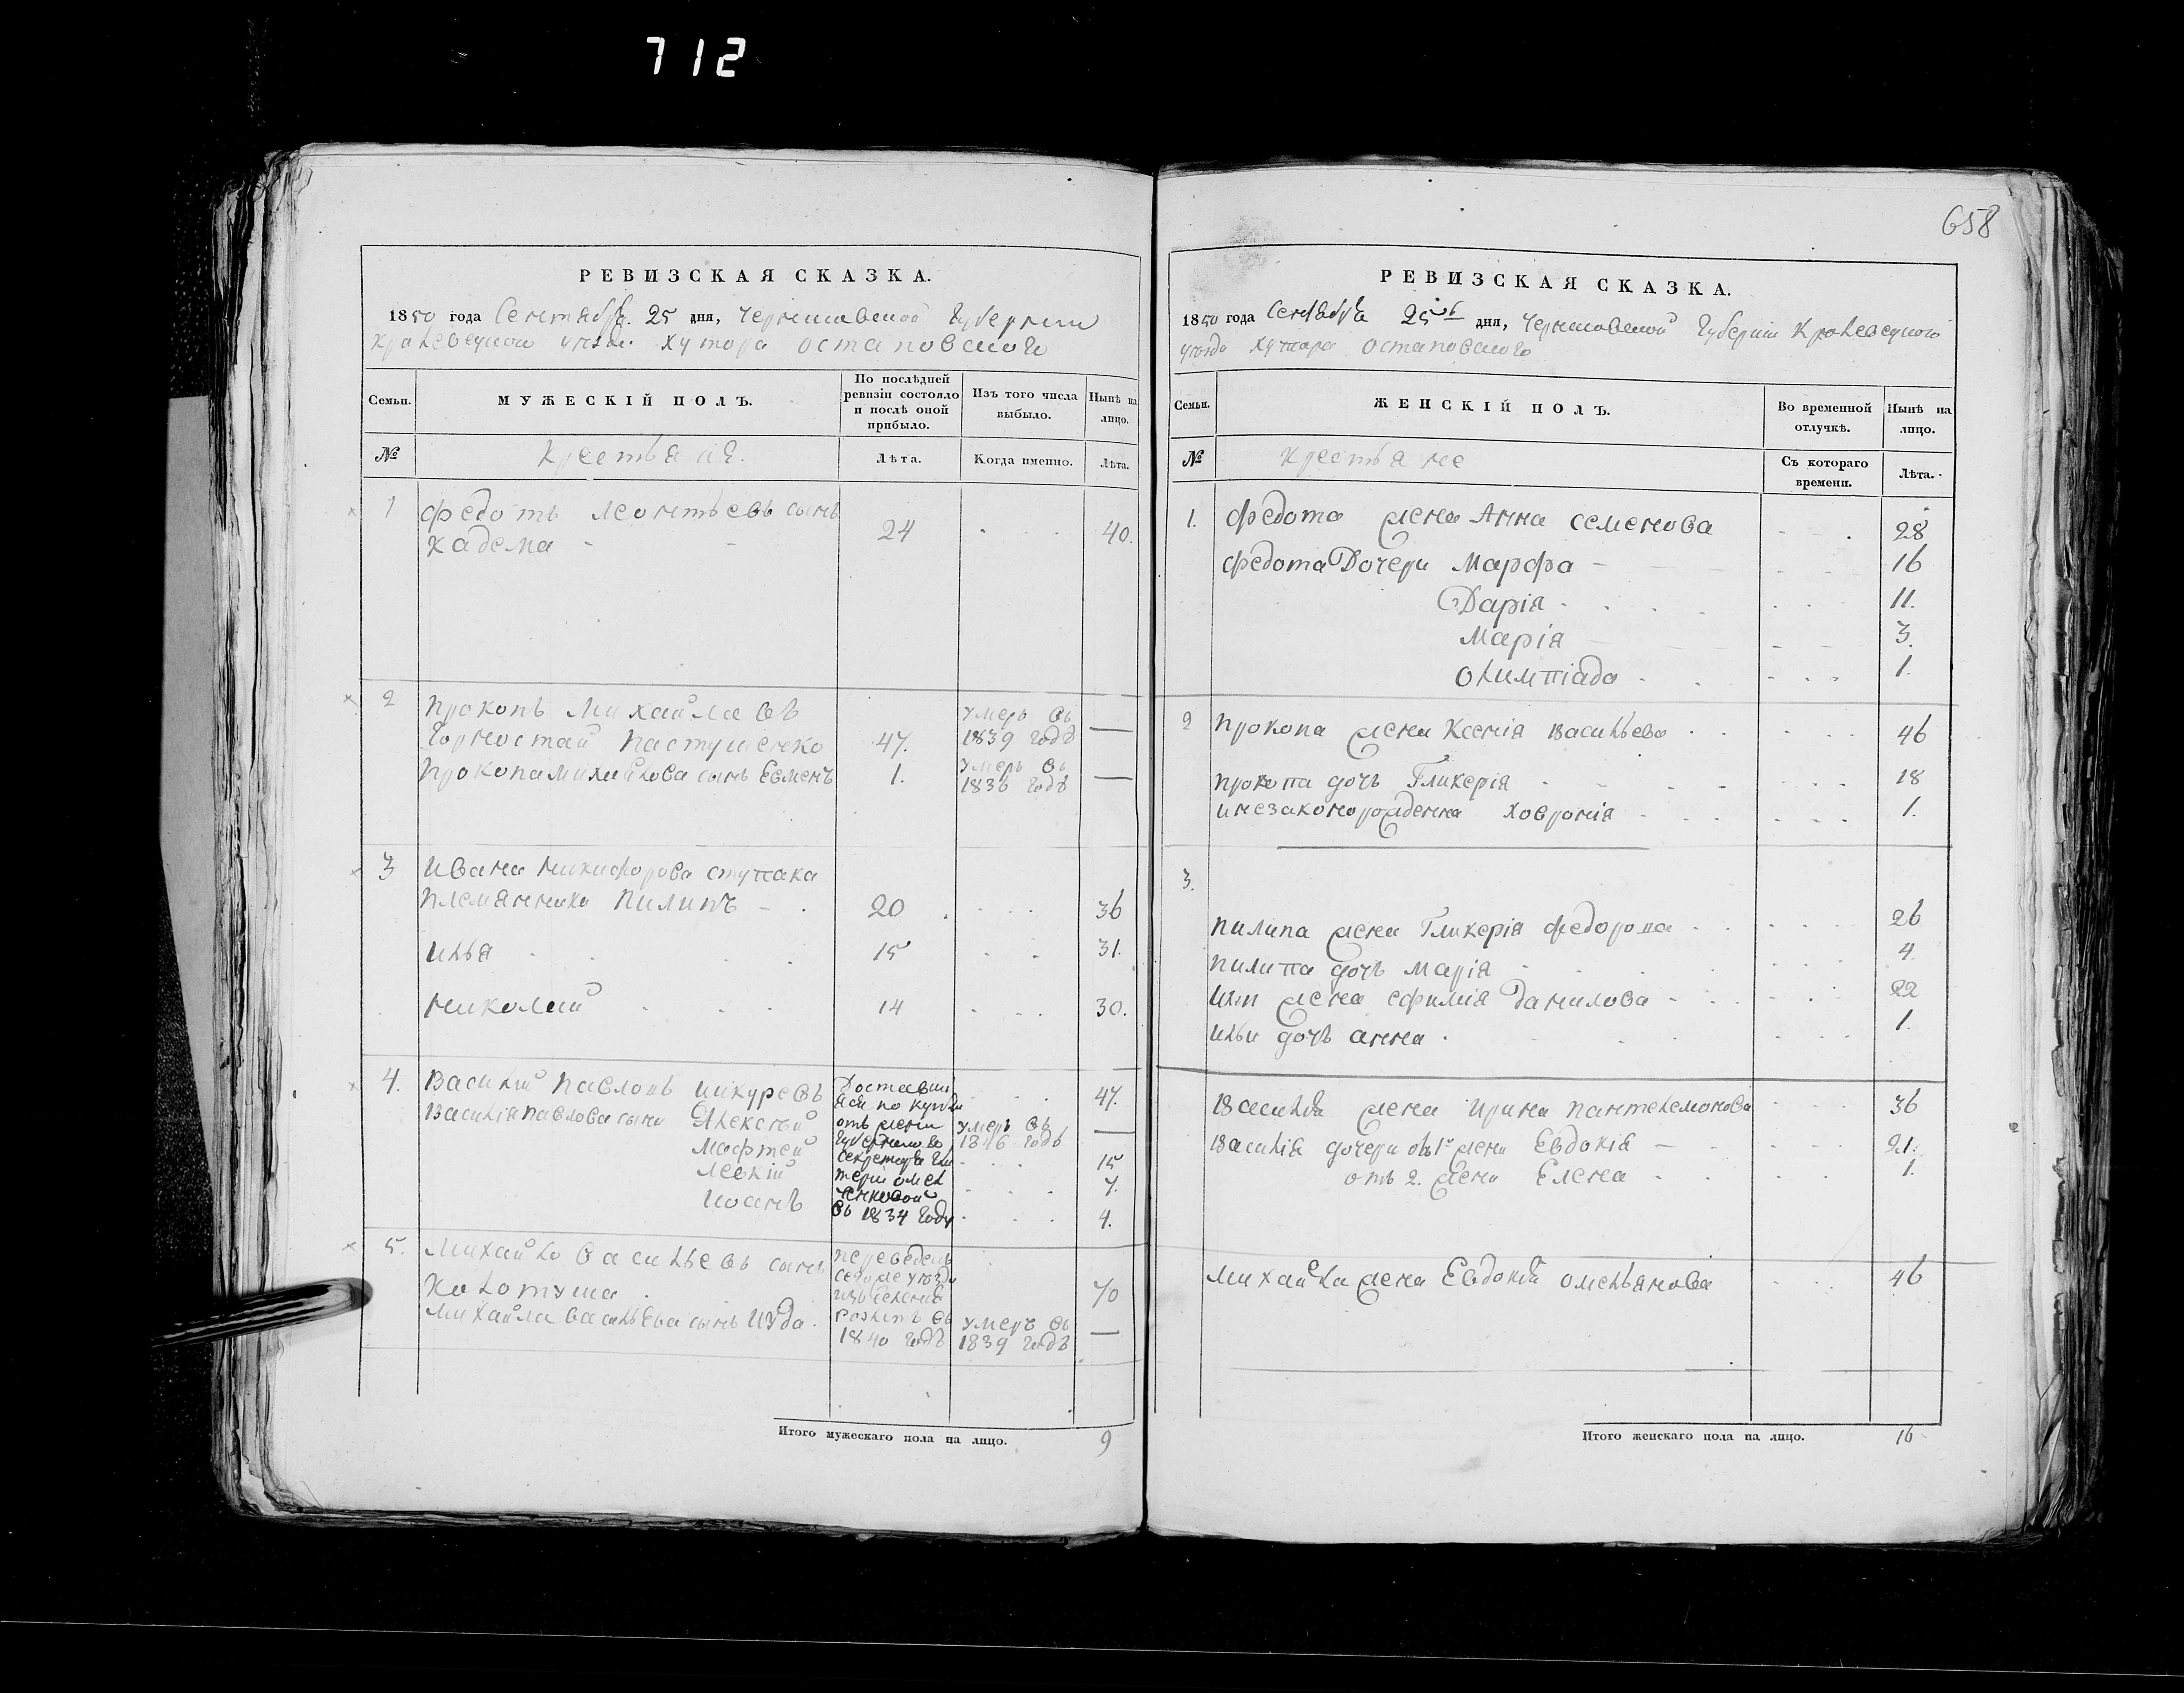 712
658
РЕВИЗСКАЯ СКАЗКА.
1850 года Сентября 25 дня, Черниговской Губернии
Кролевецкого уезда хутора Остаповского
Семьи.
МУЖЕСКІЙ ПОЛЪ.
По послѣдней ревизіи состояло и послѣ оной прибыло.
Изъ того числа выбыло.
Нынѣ на лицо.
№
Крестьяне.
Лѣта.
Когда именно.
Лѣта.
1 Федотъ Леонтьевъ сынъ
Кадема - - 24 40.
2 Прокопъ Михайловъ умеръ въ
Горностай Пастушенко 47. 1839 годѣ —
Прокопа Михайлова сынъ Евменъ 1. умеръ въ —
1836 годѣ
3 Ивана Никифорова Ступака
племянники Пилипъ 20 36
Илья 15 31.
Николай 14 30.
4. Василій Павловъ Шкуревъ Доставши 47.
яся по купли
Василія Павлова сыны Алексѣй отъ жены умеръ въ —
Мафтей 1846 годѣ
секретаря 15
Левкій 7.
Иоанъ въ 1834 году 4.
5. Михайло Васильевъ сынъ переведенъ
Колотуша 70
изъ селенія
Михайла Васильева сынъ Иуда. умеръ въ —
1840 годѣ 1839 годѣ
Итого мужескаго пола на лицо. 9
РЕВИЗСКАЯ СКАЗКА.
1850 года Сентября 25 дня, Черниговской Губерніи Кролевецкого
уезда хутора Остаповского
Семьи.
ЖЕНСКІЙ ПОЛЪ.
Во временной отлучкѣ.
Нынѣ на лицо.
№
Крестьяне
Съ котораго времени.
Лѣта.
1. Федота жена Анна Семенова 28
Федота Дочери Марфа 16
Дарія 11.
Марія 3.
Олимпіада 1.
2 Прокопа жена Ксенія Васильева 46
Прокопа дочь Гликерія 18
и незаконорожденна Ховронія 1.
3.
Пилипа жена Гликерія Федорова 26
Пилипа дочь Марія 4
Ильи жена Ефимія Данилова 22
Ильи дочь Анна 1.
Василія жена Ирина Пантелемонова 36
Василія дочери отъ 1й жены Евдокія 21.
отъ 2. жены Елена 1.
Михайла жена Евдокія Омельянова 46
Итого женскаго пола на лицо. 16